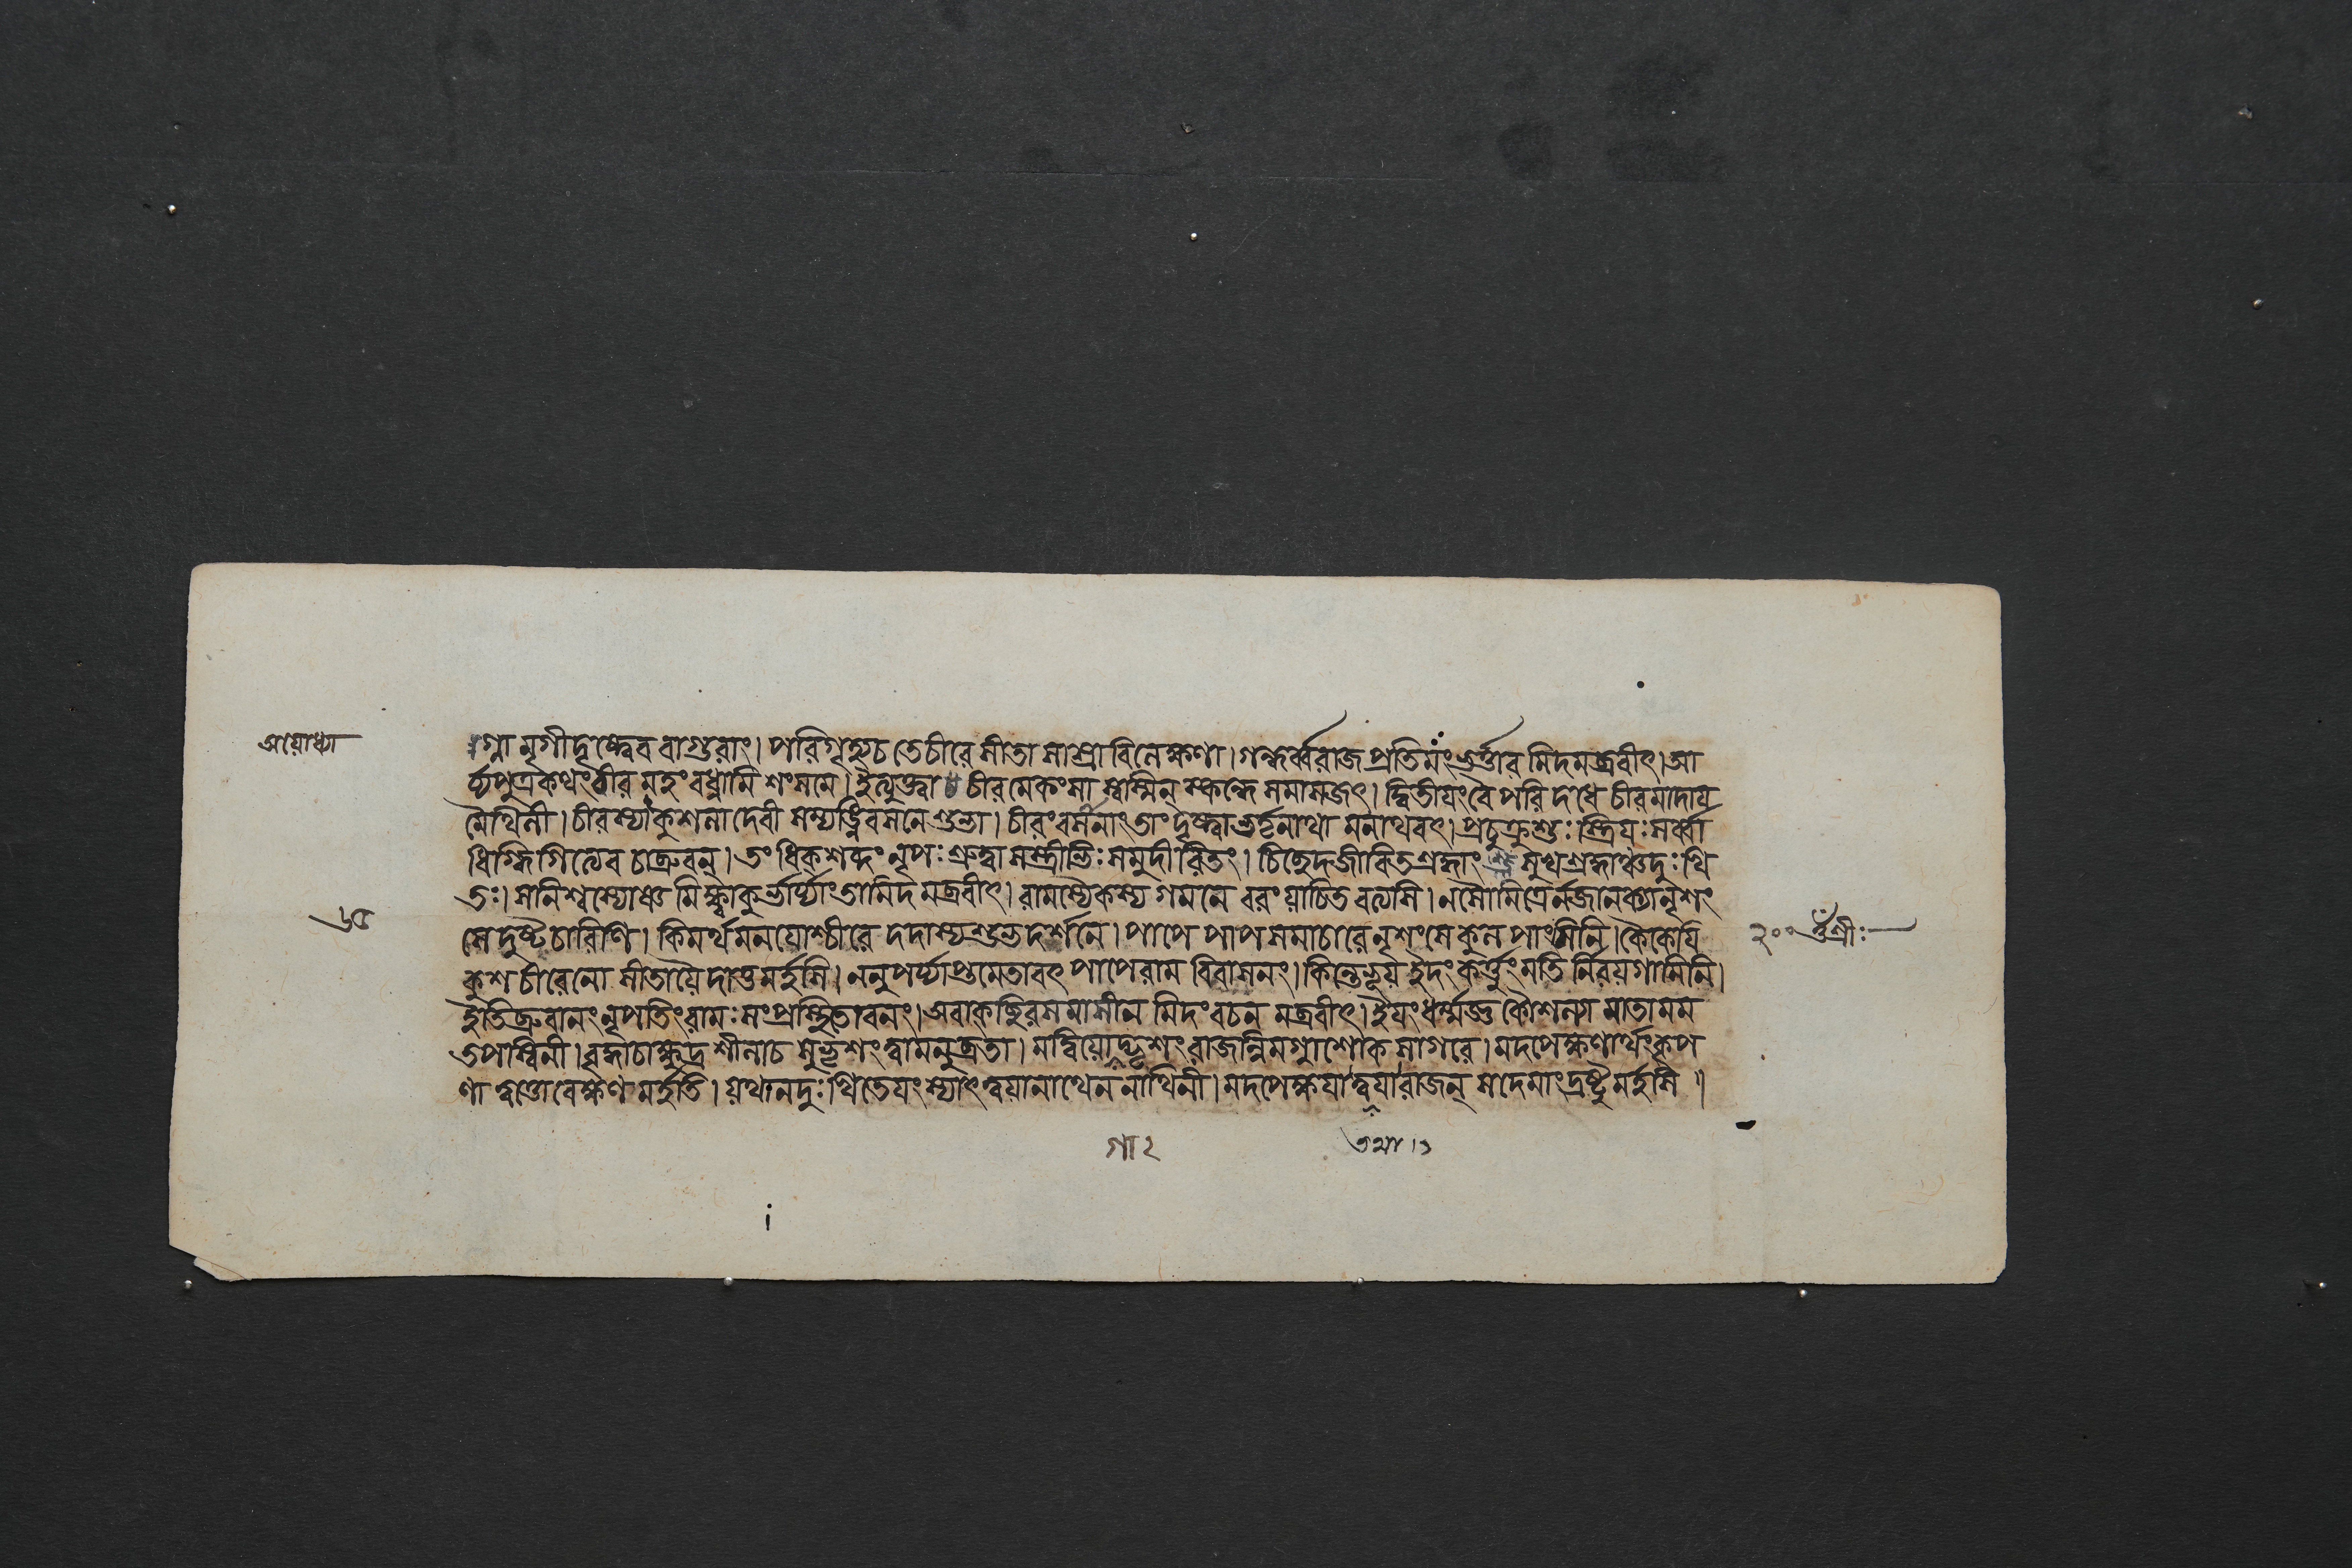 অযোধ্যা
গ্না মৃগীদৃষ্ট্বেব বাগুরাং। পরিগৃহ্যচ তেচীরে সীতা সাশ্রাবিলেক্ষণা। গন্ধর্ব্বরাজ প্রতিমংভর্ত্তার মিদমব্রবীৎ। আ
র্য্যপুত্রকথংবীর মহংবধ্নামি শংসমে। ইত্যুক্ত্বা চীর মেকংসা স্বেস্মিন্ স্কন্ধে সমাসজৎ। দ্বিতীয়ংবৈ পরিদধে চীরমাদায়
মৈথিলী। চীরস্যাকুশলা দেবী সম্যগ্বিবসনেশুভা। চীরংবসানাংতাংদৃষ্ট্বাভর্তৃনাথা মনাথবৎ। প্রচুক্রুশুঃ স্ত্রিয়ঃসর্ব্বা
ধিগ্ধিগিত্যেব চাব্রুবন্। তংধিক্শব্দংনৃপঃশ্রুত্বা সস্ত্রীভিঃ সমুদীরিতং। চিচ্ছেদজীবিতশ্রদ্ধাং সুখশ্রদ্ধাঞ্চদুঃখি
তঃ। সনিশ্বস্যোষ্ণ মিক্ষ্বাকুর্ভার্য্যাংতামিদমব্রবীৎ। রামস্যৈকস্য গমনে বরংযাচিতবত্যসি। নসৌমিত্রের্নজানক্যানৃশং
সে দুষ্টচারিণি। কিমর্থমনয়োশ্চীরে দদাস্যশুভদর্শনে। পাপে পাপসমাচারে নৃশংসে কুলপাংসিনি। কৈকেয়ি
কুশচীরেনো সীতায়ৈদাতুমর্হসি। ননুপর্য্যাপ্তমেতাবৎ পাপেরাম বিবাসনং। কিন্তেভূয় ইদংকর্ত্তুংমতি র্নিরয়গামিনি।
ইতিব্রুবানংনৃপতিংরামঃ সংপ্রস্থিতোবনং। অবাক্ছিরসমাসীন মিদংবচন মব্রবীৎ। ইয়ংধর্ম্মজ্ঞ কৌশল্যা মাতা মম
তপস্বিনী। বৃদ্ধাচাক্ষুদ্রশীলাচ সুভৃশংত্বামনুব্রতা। মদ্বিয়োগাদ্ভৃশংরাজন্নিমগ্নাশোক সাগরে। মদপেক্ষণার্থংকৃপ
ণা ত্বত্তোবেক্ষণ মর্হতি। যথানদুঃখিতেয়ংস্যাৎ ত্বয়ানাথেন নাথিনী। মদপেক্ষয়াত্বয়ারাজন্ সদেমাংদ্রষ্টুমর্হসি॥
৬৫
২০০
শ্রীঃ
গা ২